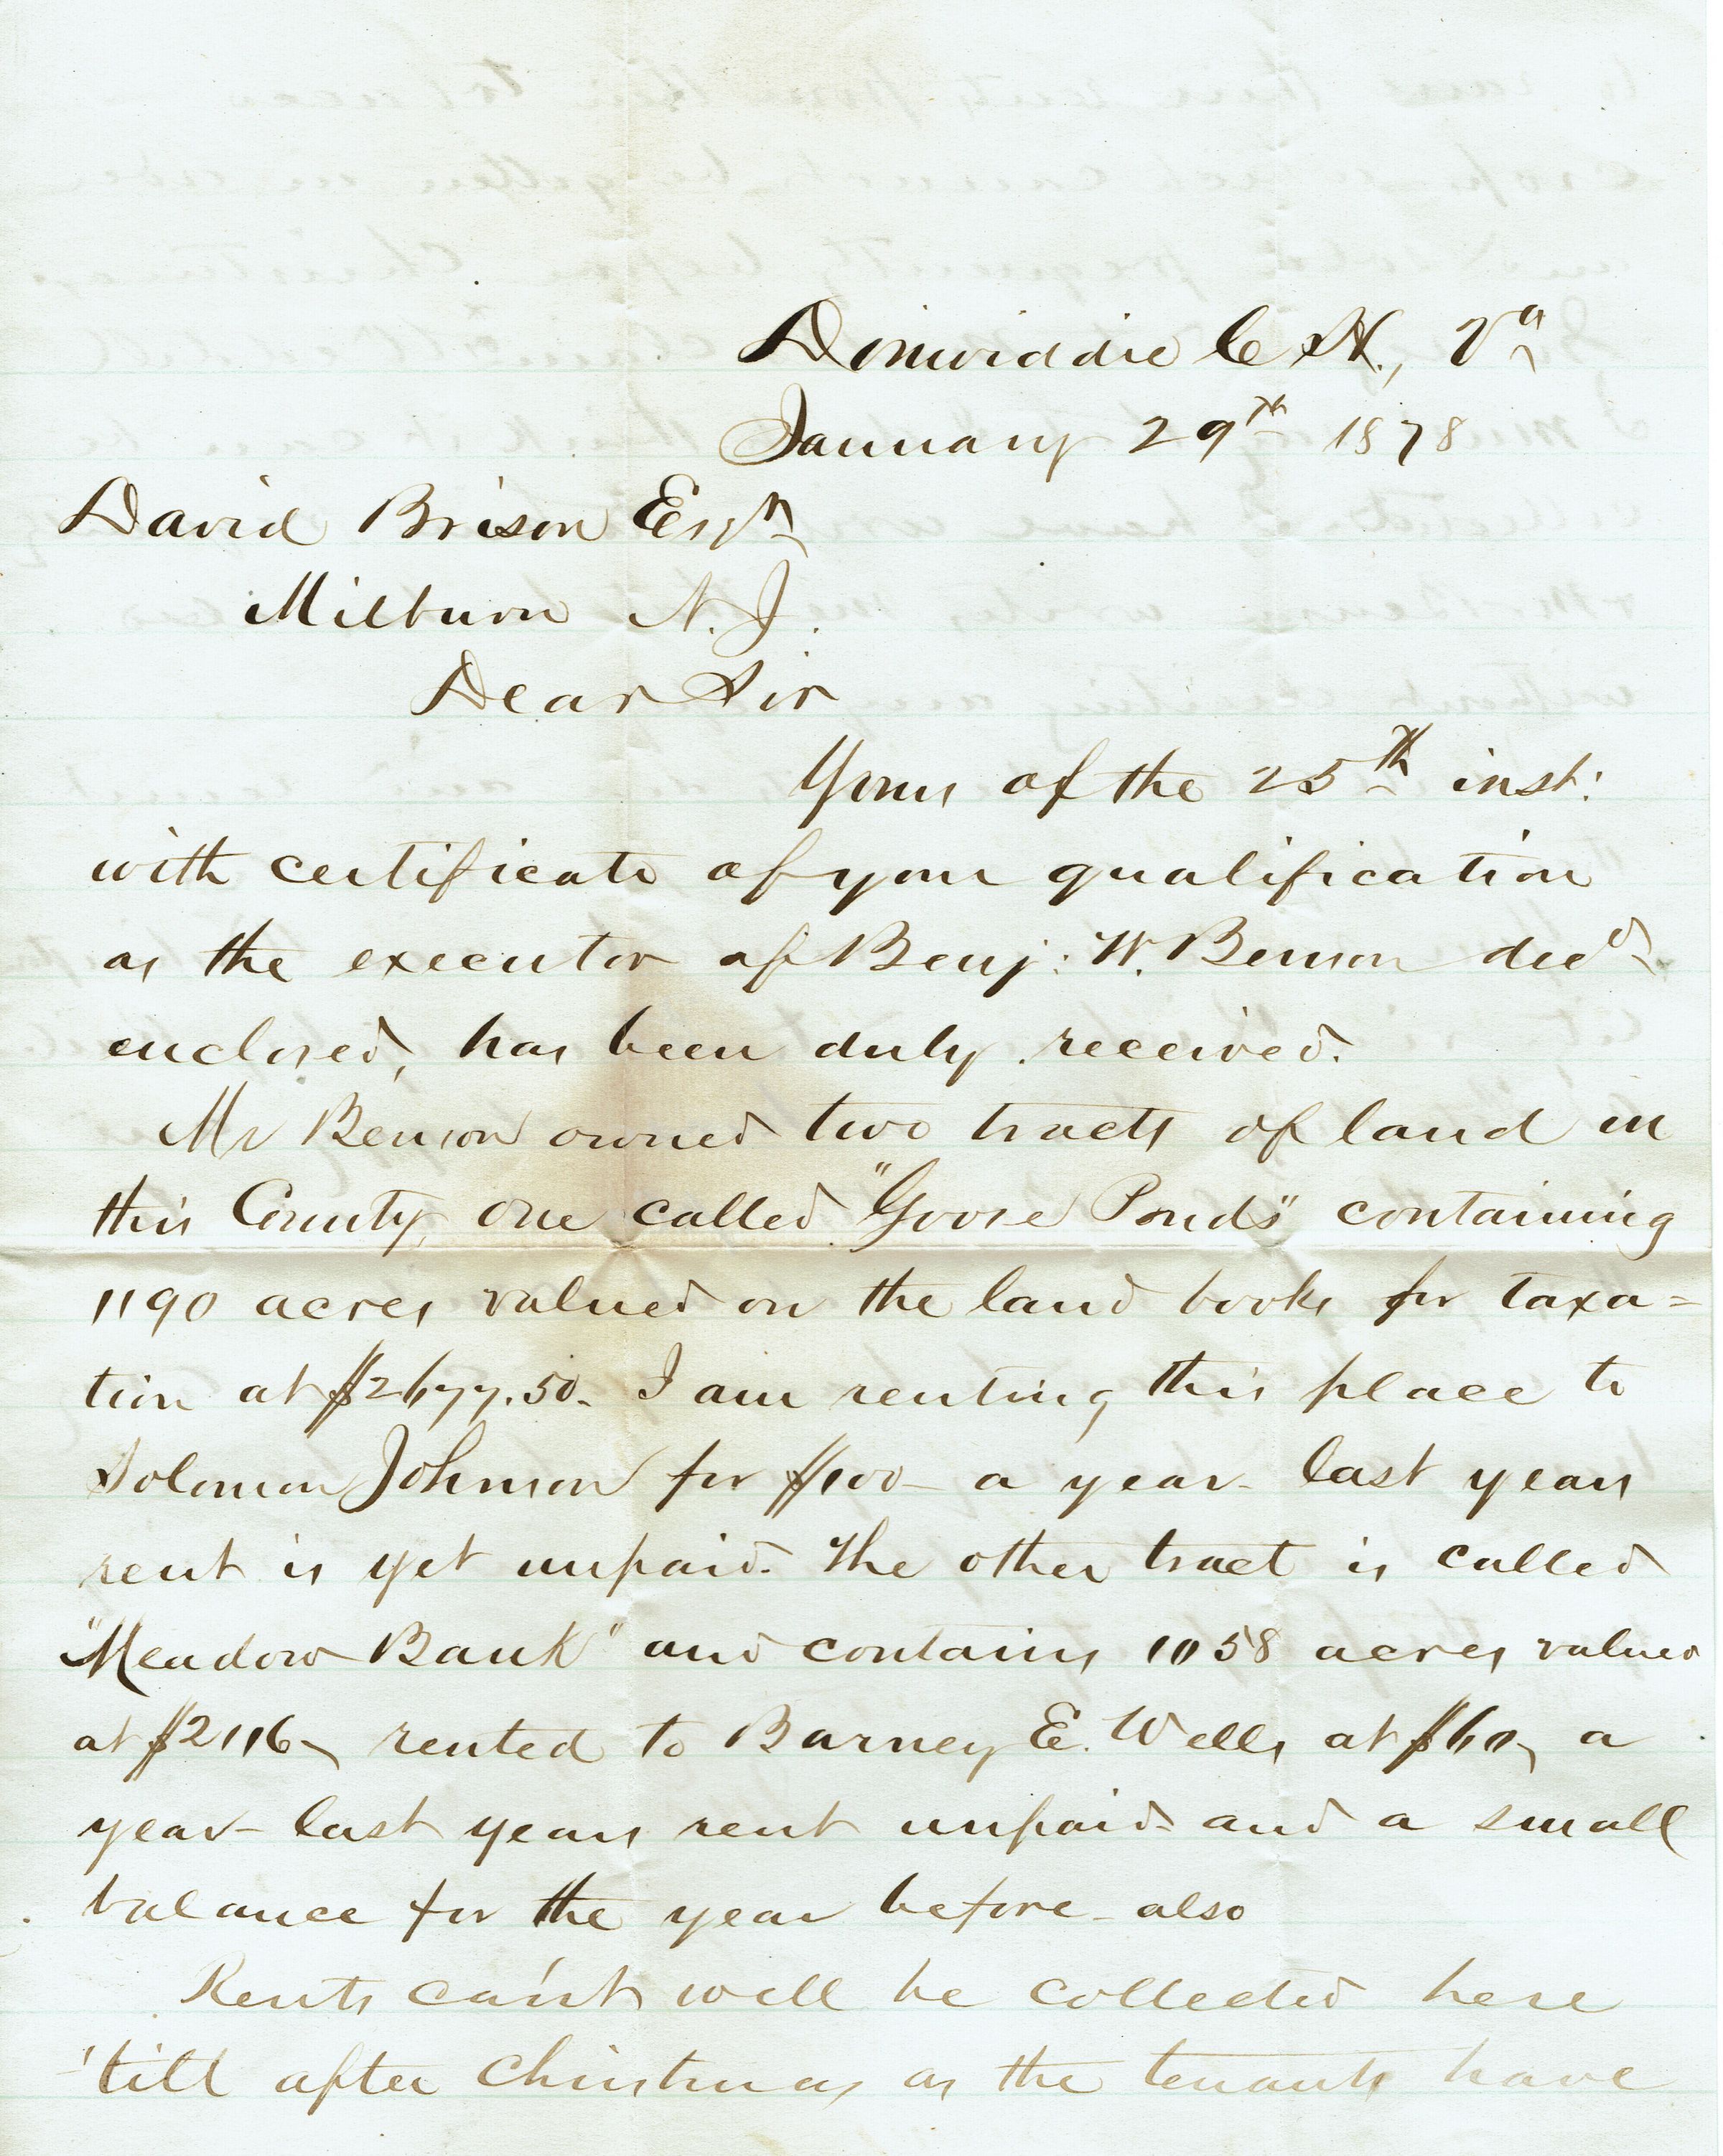 Dinwiddie C. H., Va
January 29th 1878
David Brison Esqr
Milburn N. J.
Dear Sir
Yours of the 25th inst:
with certificate of your qualification
as the executor of Benj: W. Benson decd
enclosed, has been duly received.
Mr Benson owned two tracts of land in
this County, one called "Goose Ponds" containing
1190 acres valued on the land books for taxa=
tion at $2677.50. I am renting this place to
Solomon Johnson for $100 - a year - last years
rent is yet unpaid. The other tract is called
"Meadow Bank" and contains 1058 acres valued
at $2116 - rented to Barney E. Wells at $60, a
year - last years rent unpaid - and a small
balance for the year before - also
Rents can't well be collected here
'till after Christmas as the tenants have